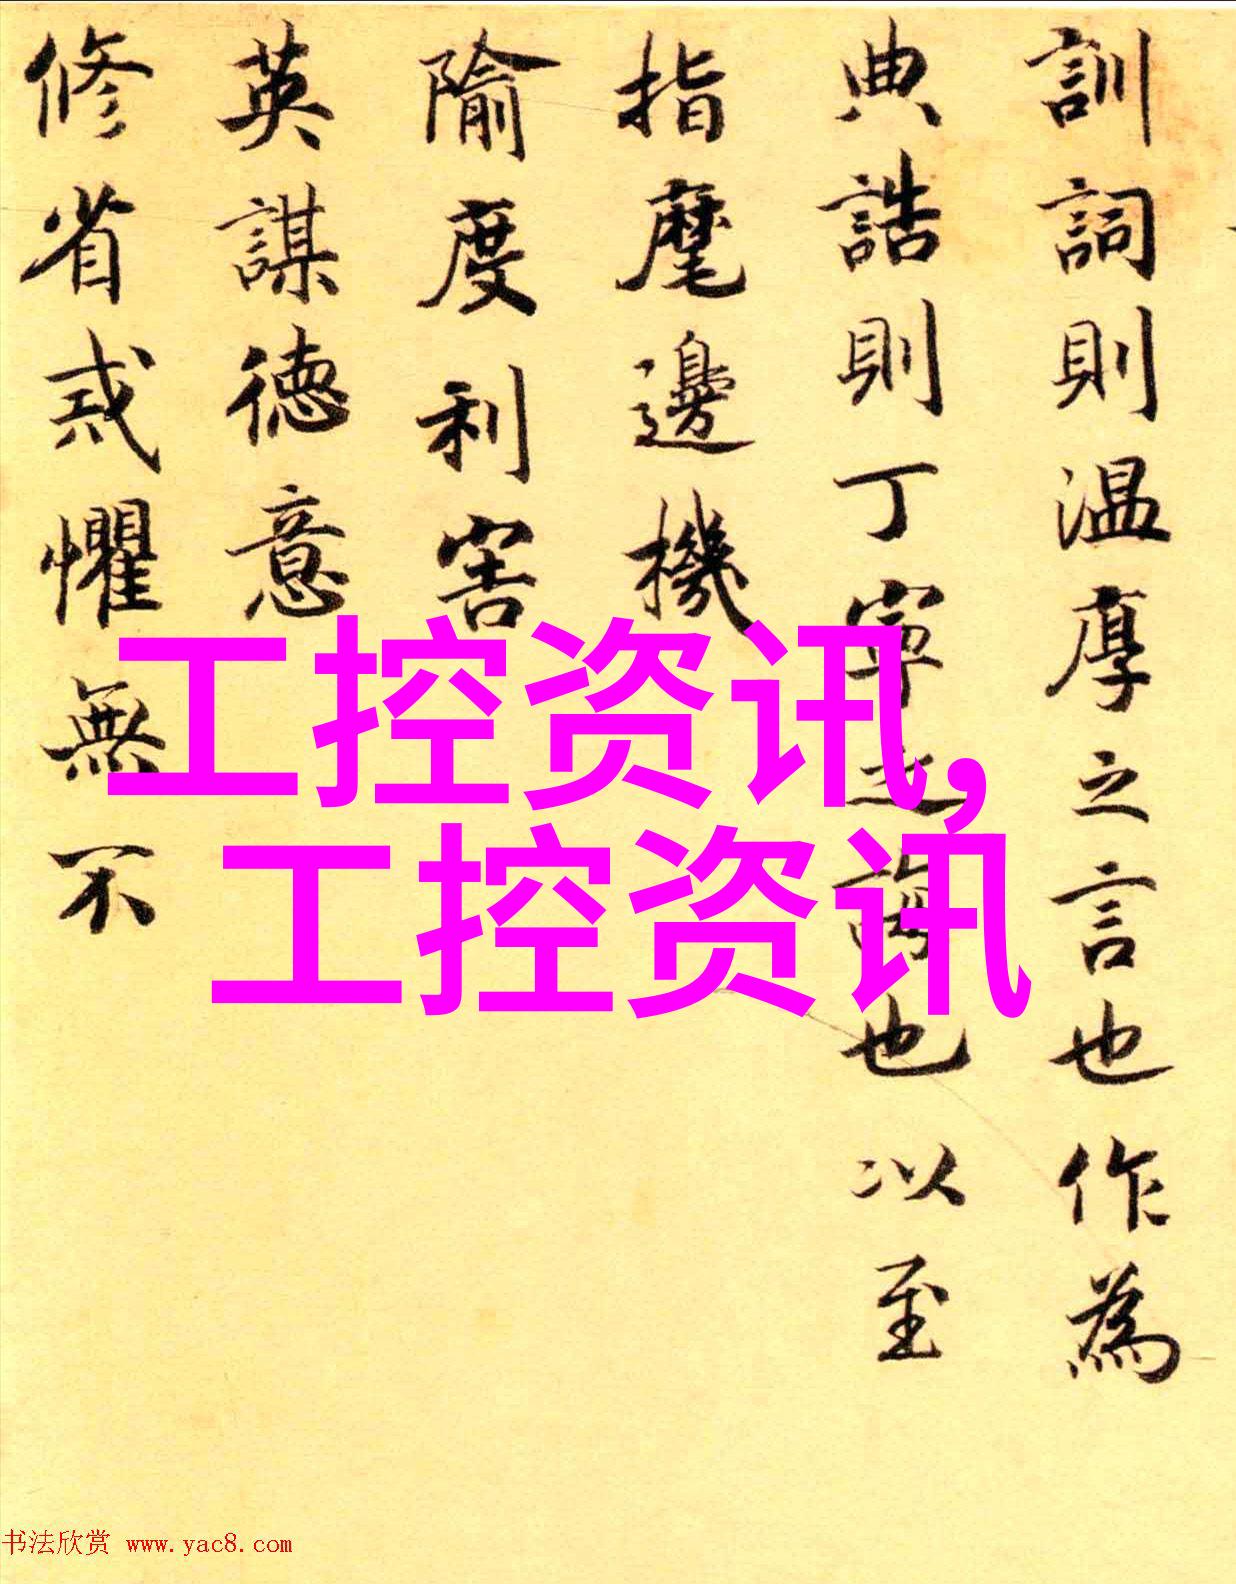 訓詞則温厚之言也作為
典誥則丁寧之誨也以至
指麾邊機
隃度利害
英謀徳意
修省戒懼無不
工控资讯,
工控资讯
书法欣赏 www.yac8.com